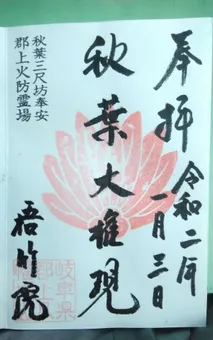 奉拝
令和二年
一月三日
秋葉大権現
秋葉三尺坊奉安
郡上火防霊場
悟竹院
岐阜県